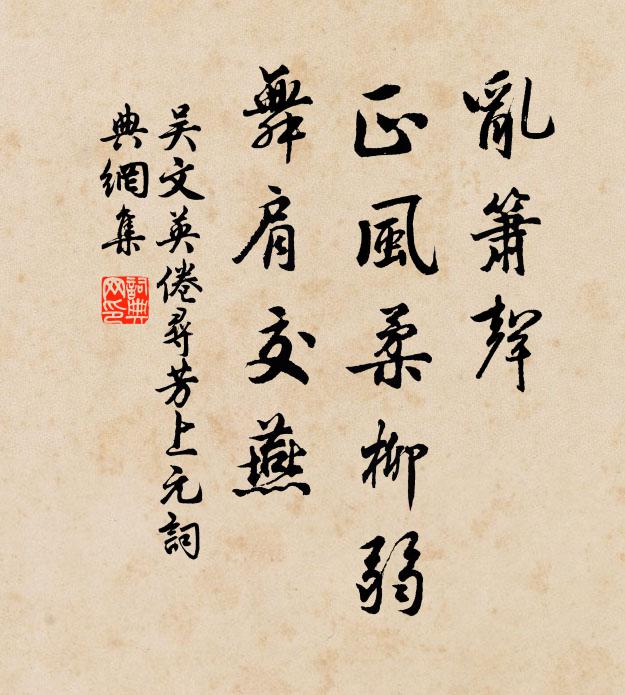 亂簫聲
正風柔柳弱
舞肩交燕
吳文英倦尋芳上元詞
典網集
詞典
网印